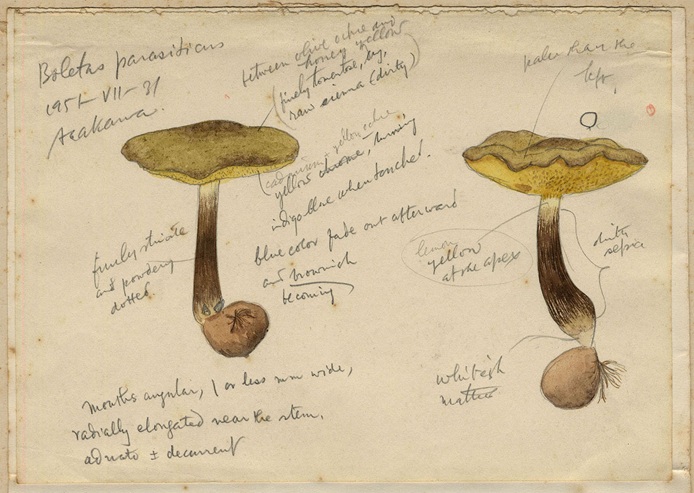 Boletus parasiticus
1951-VII-31
Asakawa.
between olive ochre and
honey yellow
(finely tomentose, dry,
raw siena (dirty)
cadmium + yellow ochre
yellow chrome, turning
indigo-blue when touched.
blue color fade out afterward
and brownish
becoming
finely striate
and powdery
dotted
paler than the
left,
lemon
yellow
at the apex
sepia
whitish
mouths angular, 1 or less mm wide,
radially elongated near the stem,
adnate ± decurrent